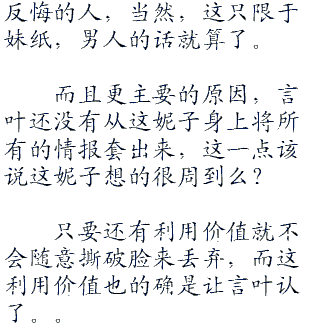 反悔的人，当然，这只限于
妹纸，男人的话就算了。
而且更主要的原因，言
叶还没有从这妮子身上将所
有的情报套出来，这一点该
说这妮子想的很周到么？
只要还有利用价值就不
会随意撕破脸来丢弃，而这
利用价值也的确是让言叶认
了。。